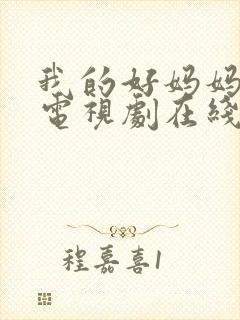 我的好妈妈
電視劇在綫
程嘉喜1